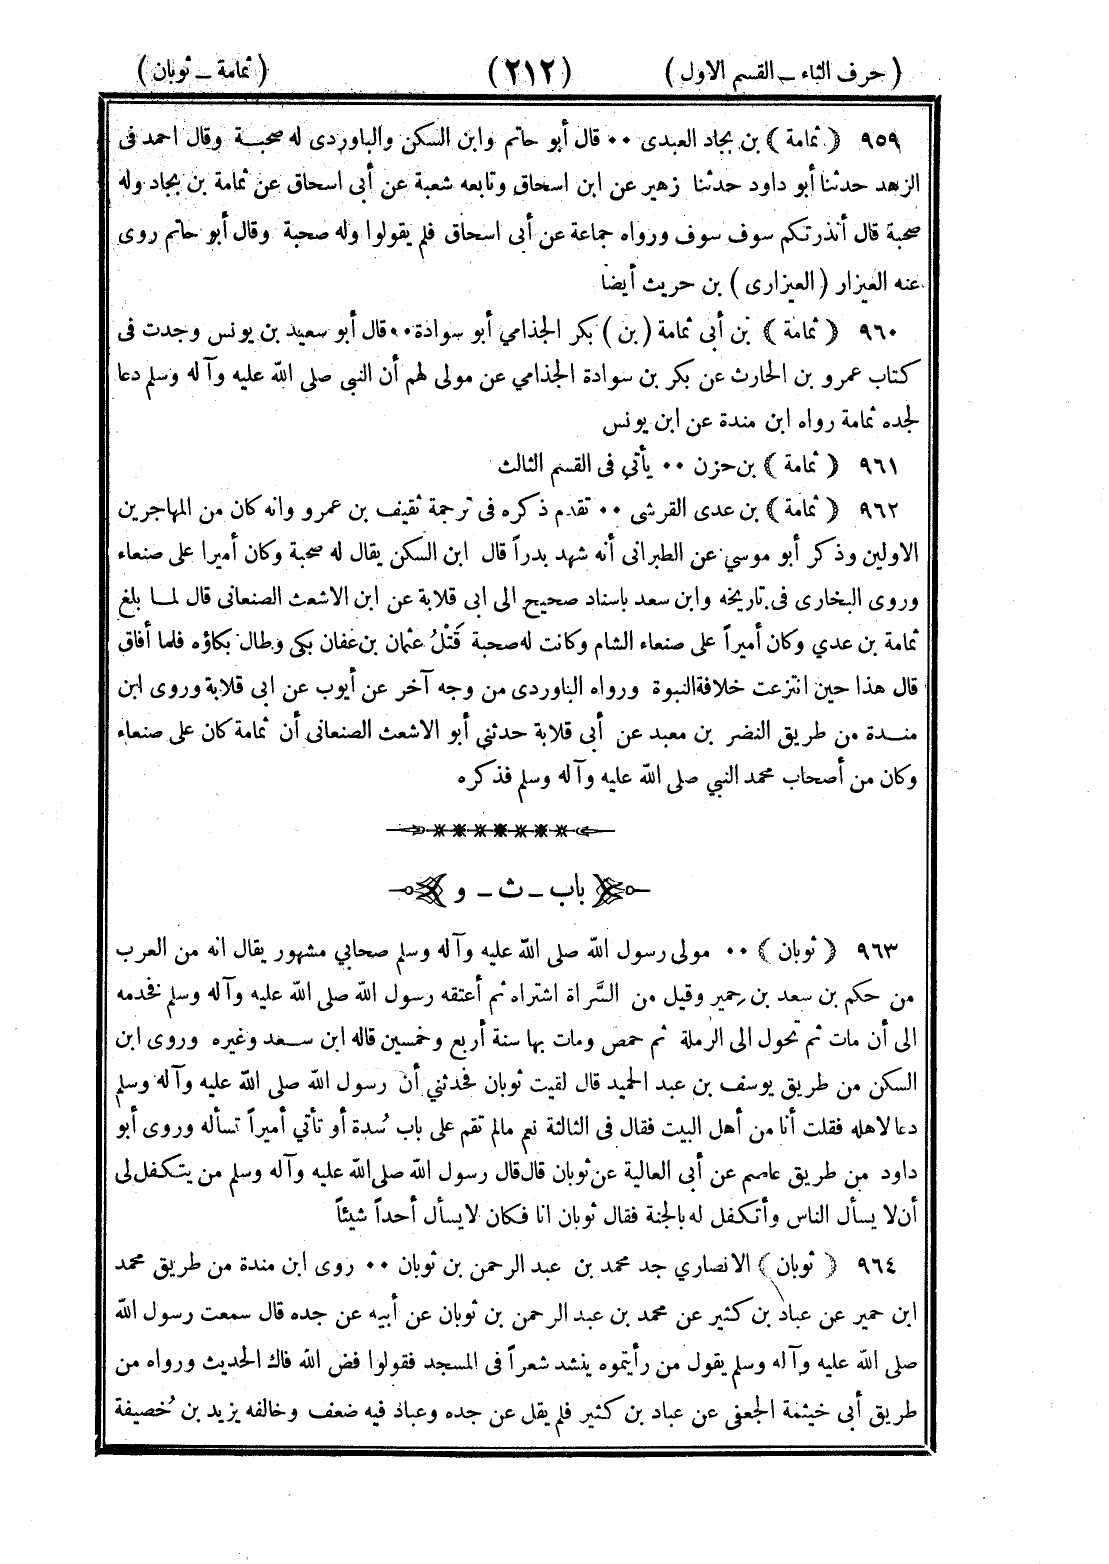 ( حرف الثاء ــ القسم الاول )
( ٢١٢ )
( ثمامة ــ ثوبان )
٩٥٩ ( ثمامة ) بن بجاد العبدى ٠٠ قال أبو حاتم وابن السكن والباوردى له صحبة وقال احمد فى
الزهد حدثنا أبو داود حدثنا زهير عن ابن اسحاق وتابعه شعبة عن أبى اسحاق عن ثمامة بن بجاد وله
صحبة قال أنذرتكم سوف سوف ورواه جماعة عن أبى اسحاق فلم يقولوا وله صحبة وقال أبو حاتم روى
عنه العيزار ( العيزارى ) بن حريث أيضا
٩٦٠ ( ثمامة ) بن أبى ثمامة ( بن ) بكر الجذامي أبو سوادة ٠٠ قال أبو سعيد بن يونس وجدت فى
كتاب عمرو بن الحارث عن بكر بن سوادة الجذامي عن مولى لهم أن النبى صلى الله عليه وآله وسلم دعا
لجده ثمامة رواه ابن مندة عن ابن يونس
٩٦١ ( ثمامة ) بن حزن ٠٠ يأتي فى القسم الثالث
٩٦٢ ( ثمامة ) بن عدى القرشى ٠٠ تقدم ذكره فى ترجمة ثقيف بن عمرو وانه كان من المهاجرين
الاولين وذكر أبو موسي عن الطبرانى أنه شهد بدراً قال ابن السكن يقال له صحبة وكان أميرا على صنعاء
وروى البخارى فى تاريخه وابن سعد باسناد صحيح الى ابى قلابة عن ابن الاشعث الصنعانى قال لما بلغ
ثمامة بن عدي وكان أميراً على صنعاء الشام وكانت له صحبة قَتْلُ عثمان بن عفان بكى وطال بكاؤه فلما أفاق
قال هذا حين انتزعت خلافة النبوة ورواه الباوردى من وجه آخر عن أيوب عن ابى قلابة وروى ابن
مندة من طريق النضر بن معبد عن أبى قلابة حدثني أبو الاشعث الصنعانى أن ثمامة كان على صنعاء
وكان من أصحاب محمد النبي صلى الله عليه وآله وسلم فذكره
باب ــ ث ــ و
٩٦٣ ( ثوبان ) ٠٠ مولى رسول الله صلى الله عليه وآله وسلم صحابي مشهور يقال انه من العرب
من حكم بن سعد بن حمير وقيل من السَّراة اشتراه ثم أعتقه رسول الله صلى الله عليه وآله وسلم فخدمه
الى أن مات ثم تحول الى الرملة ثم حمص ومات بها سنة أربع وخمسين قاله ابن سعد وغيره وروى ابن
السكن من طريق يوسف بن عبد الحميد قال لقيت ثوبان فحدثني أن رسول الله صلى الله عليه وآله وسلم
دعا لاهله فقلت أنا من أهل البيت فقال فى الثالثة نعم مالم تقم على باب سُدة أو تأتي أميراً تسأله وروى أبو
داود من طريق عاصم عن أبى العالية عن ثوبان قال قال رسول الله صلى الله عليه وآله وسلم من يتكفل لى
أن لا يسأل الناس وأتكفل له بالجنة فقال ثوبان انا فكان لا يسأل أحداً شيئاً
٩٦٤ ( ثوبان ) الانصاري جد محمد بن عبد الرحمن بن ثوبان ٠٠ روى ابن مندة من طريق محمد
ابن حمير عن عباد بن كثير عن محمد بن عبد الرحمن بن ثوبان عن أبيه عن جده قال سمعت رسول الله
صلى الله عليه وآله وسلم يقول من رأيتموه ينشد شعراً فى المسجد فقولوا فض الله فاك الحديث ورواه من
طريق أبى خيثمة الجعفى عن عباد بن كثير فلم يقل عن جده وعباد فيه ضعف وخالفه يزيد بن خُصيفة